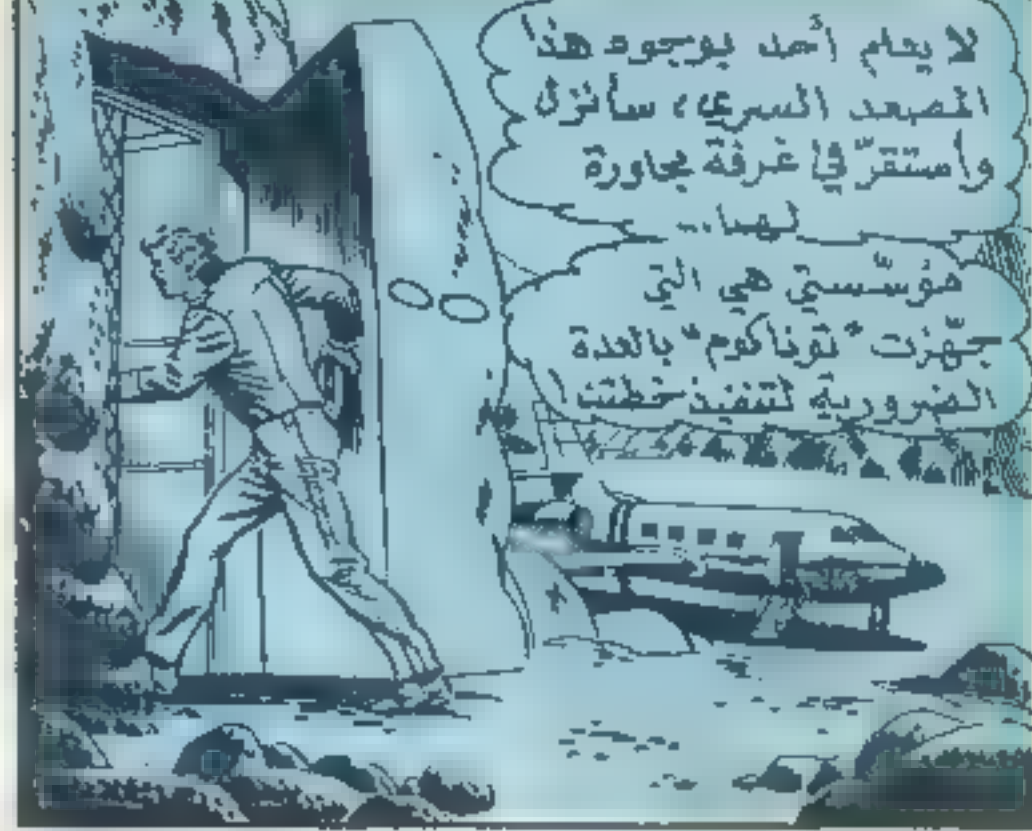 لا يعلم أحد بوجود هذا
المصعد السري، سأنزل
وأستقرّ في غرفة مجاورة
لهما...
مؤسّستي هي التي
جهّزت "توناكوم" بالعدة
الضرورية لتنفيذ خطتنا!